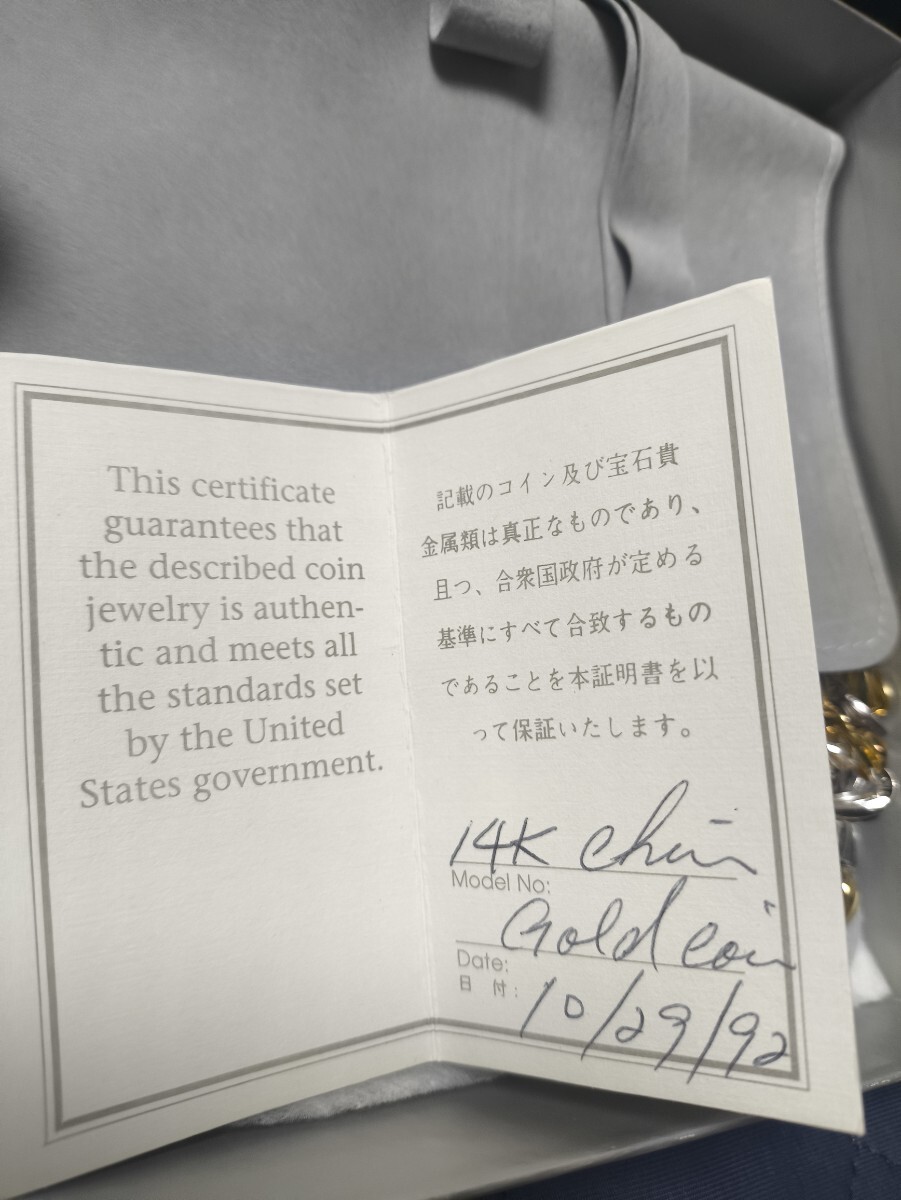 This certificate
guarantees that
the described coin
jewelry is authen-
tic and meets all
the standards set
by the United
States government.
記載のコイン及び宝石貴
金属類は真正なものであり、
且つ、合衆国政府が定める
基準にすべて合致するもの
であることを本証明書を以
って保証いたします。
14K Chain
Model No:
Gold Coin
Date:
日 付:
10/29/92